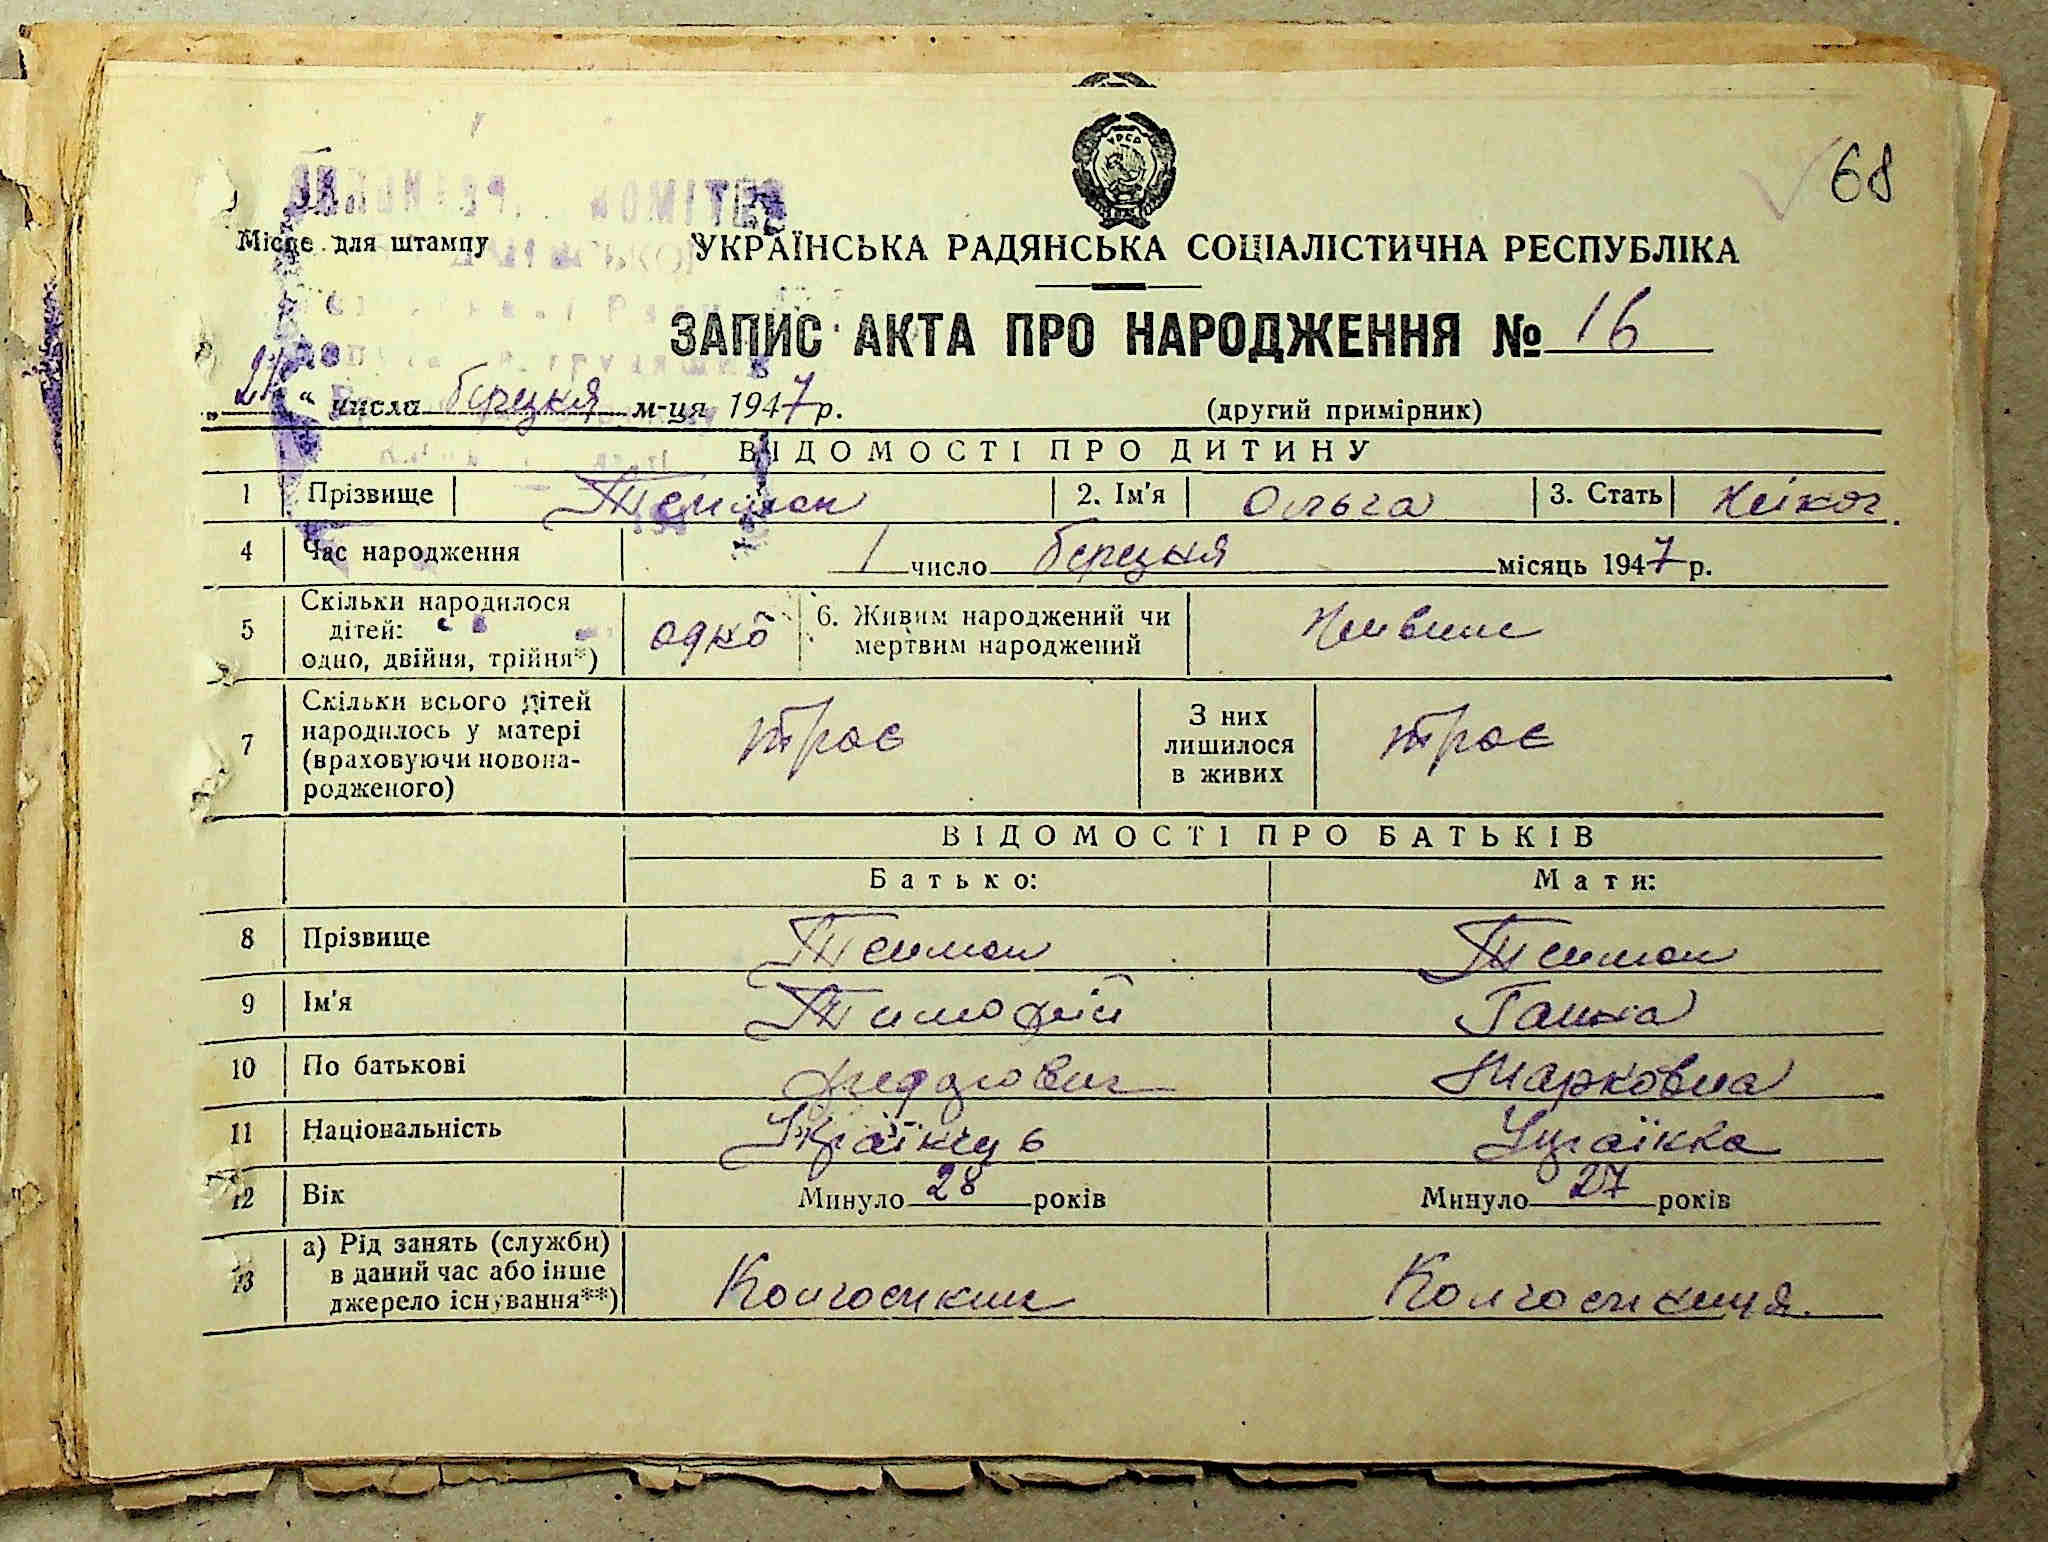 68
УРСР
Місце для штампу
УКРАЇНСЬКА РАДЯНСЬКА СОЦІАЛІСТИЧНА РЕСПУБЛІКА
ЗАПИС АКТА ПРО НАРОДЖЕННЯ № 16
числа березня м-ця 1947 р. (другий примірник)
ВІДОМОСТІ ПРО ДИТИНУ
1 Прізвище 2. Ім'я Ольга 3. Стать жіноч.
4 Час народження 1 число березня місяць 1947 р.
5 Скільки народилося дітей: одно, двійня, трійня*) одно 6. Живим народжений чи мертвим народжений живим
7 Скільки всього дітей народилось у матері (враховуючи новонародженого) троє З них лишилося в живих троє
ВІДОМОСТІ ПРО БАТЬКІВ
Батько: Мати:
8 Прізвище
9 Ім'я Тимофій Ганна
10 По батькові Федорович Марковна
11 Національність Українць Українка
12 Вік Минуло 28 років Минуло 27 років
13 а) Рід занять (служби) в даний час або інше джерело існування**) Колгоспник Колгоспниця.